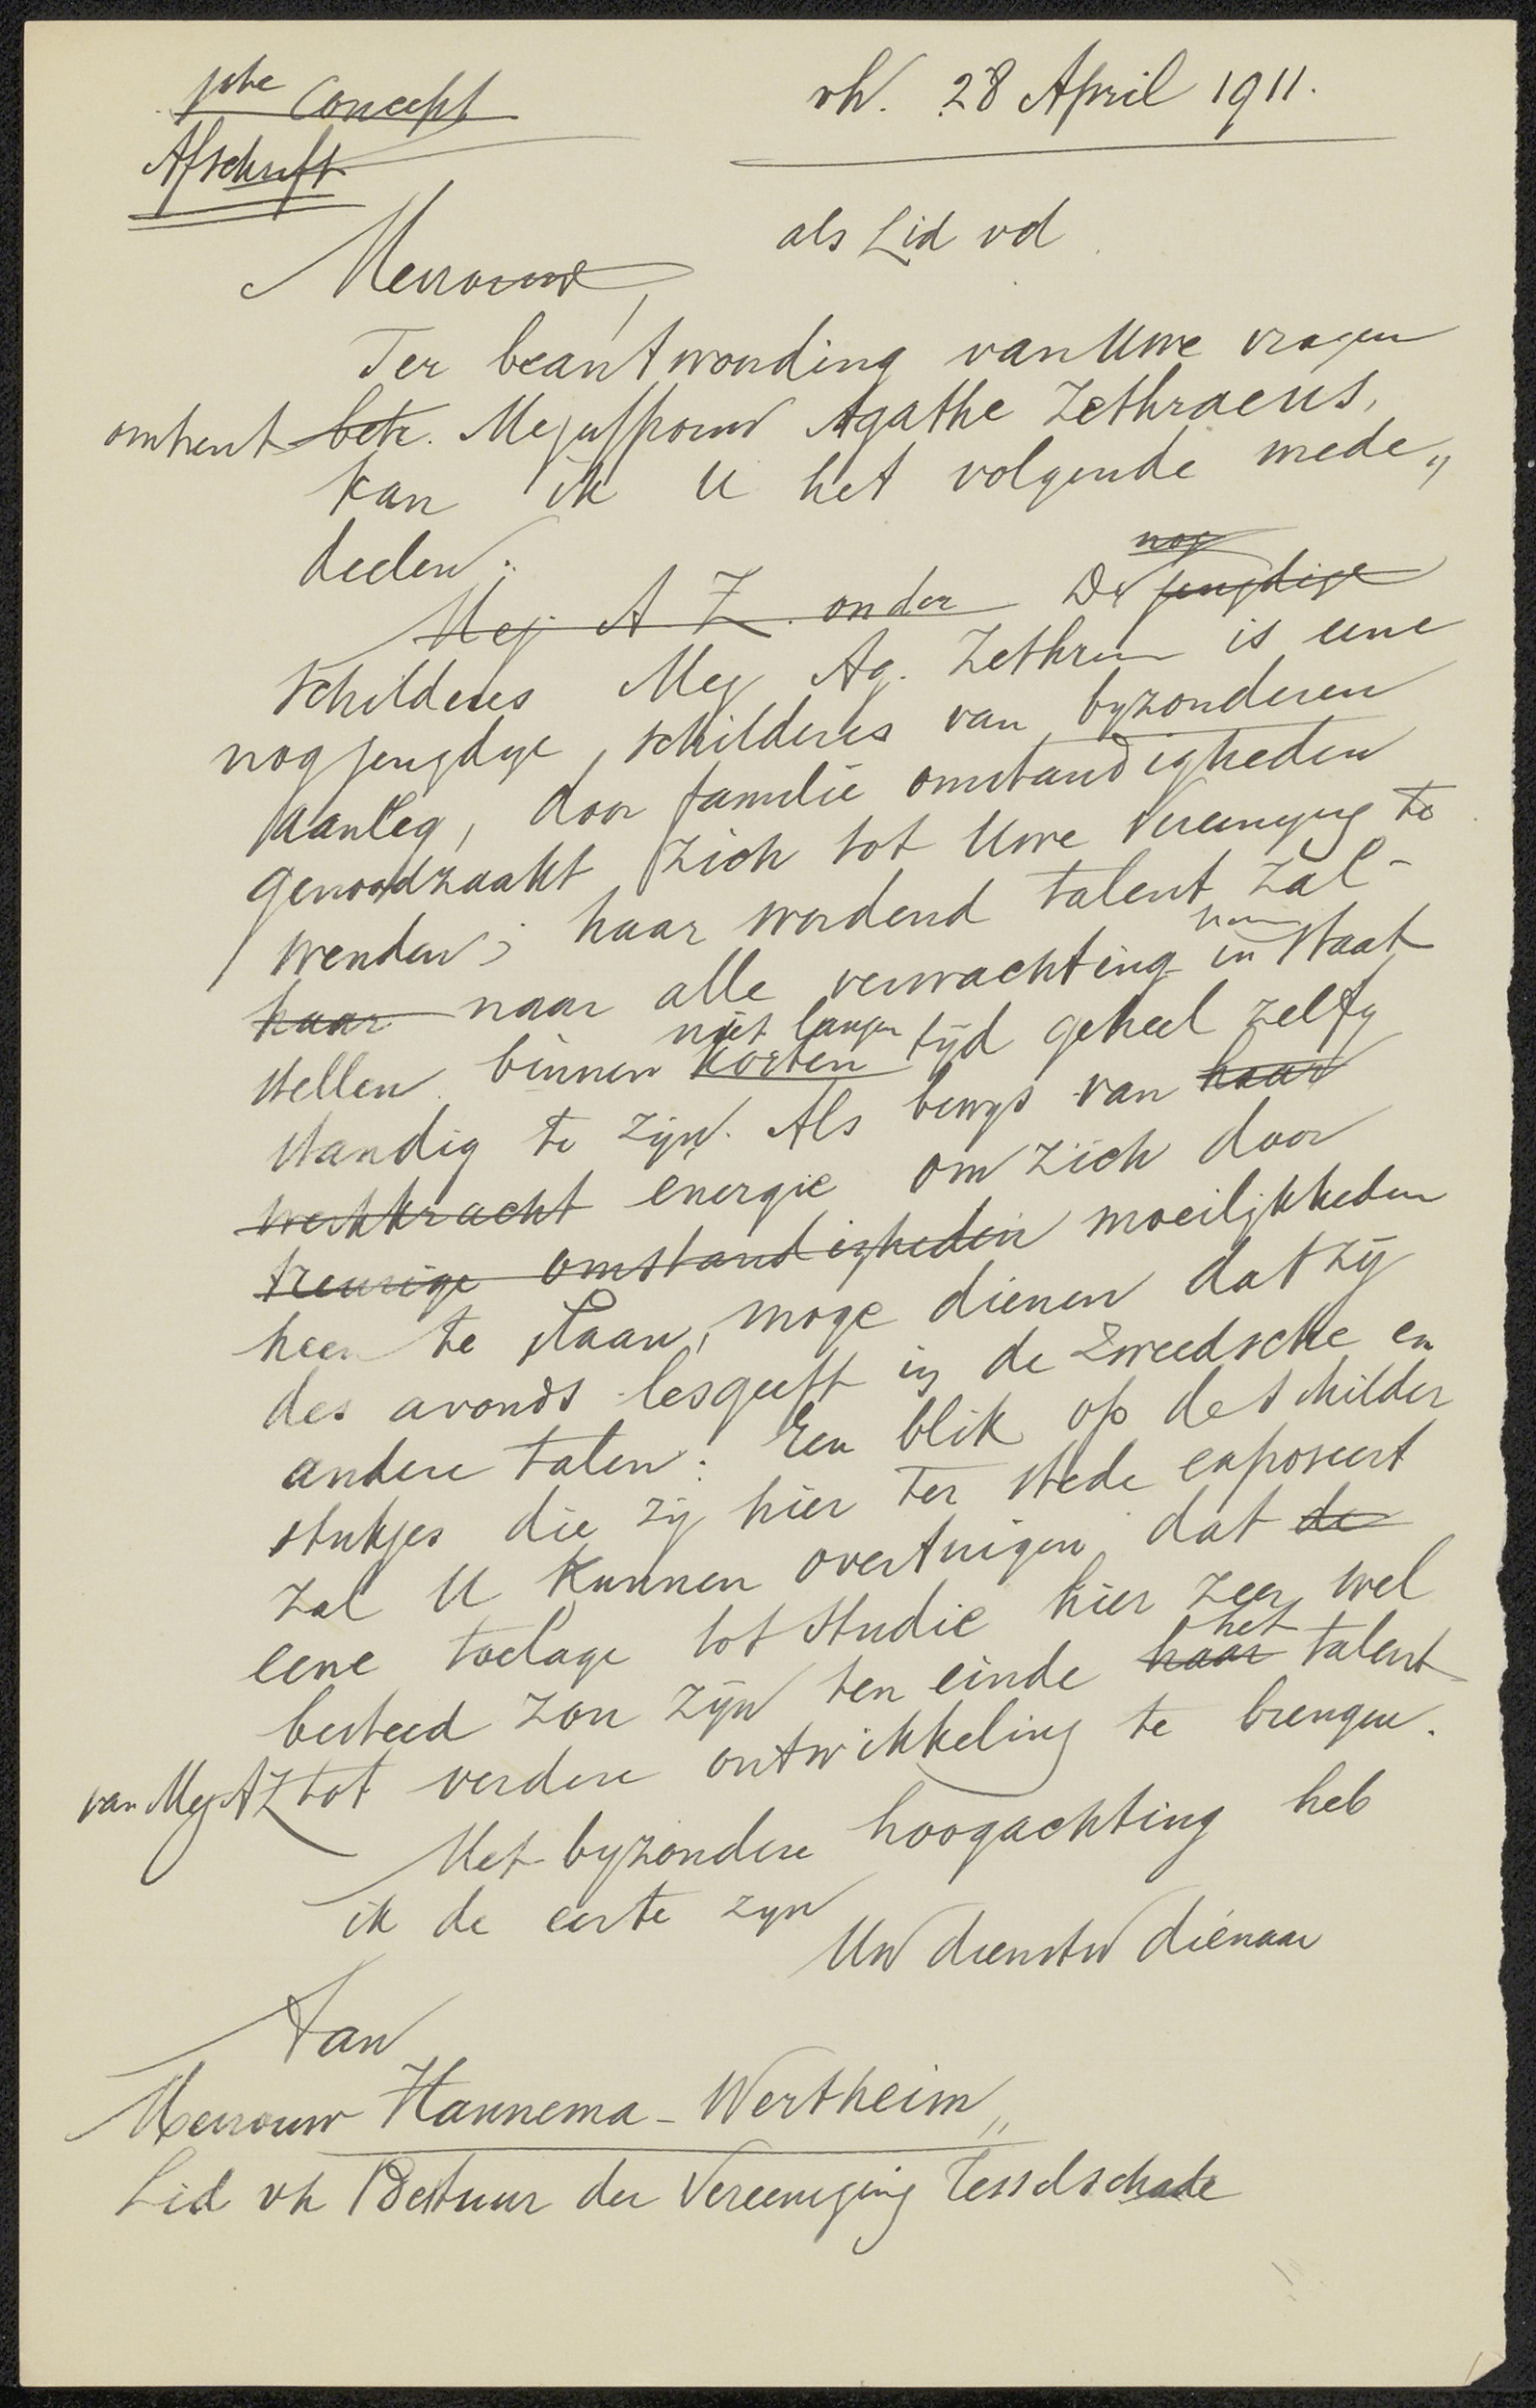 Concept
vh. 28 April 1911.
Afschrift
als Lid vd
Mevrouw,
Ter beantwoording van Uwe vragen
omtrent betr. Mejuffrouw Agathe Zethraeus,
kan ik U het volgende mede„
deelen:
nog
Mej A Z. onder De jeugdige
schilderes Mej Ag. Zethraeus is eene
nog jeugdige schilderes van byzonderen
aanleg, door familie omstandigheden
genoodzaakt zich tot Uwe Vereeniging te
wenden; haar wordend talent zal
haar naar alle verwachting in staat
niet langen
stellen binnen korten tyd geheel zelfs
standig te zyn. Als bewys van haar
werkkracht energie om zich door
treurige omstandigheden moeilykheden
heen te slaan, moge dienen dat zy
des avonds lesgeeft in de Zweedsche en
andere talen. Een blik op de schilder
stukjes die zy hier ter stede exposeert
zal U kunnen overtuigen dat de
eene toelage tot studie hier zeer wel
het
besteed zou zyn ten einde haar talent
van Mej AZ tot verdere ontwikkeling te brengen.
Met byzondere hoogachting heb
ik de eerte zyn
Uw dienstw dienaar
Aan
Mevrouw Hannema - Wertheim„
Lid vh Bestuur der Vereeniging Tesselschade